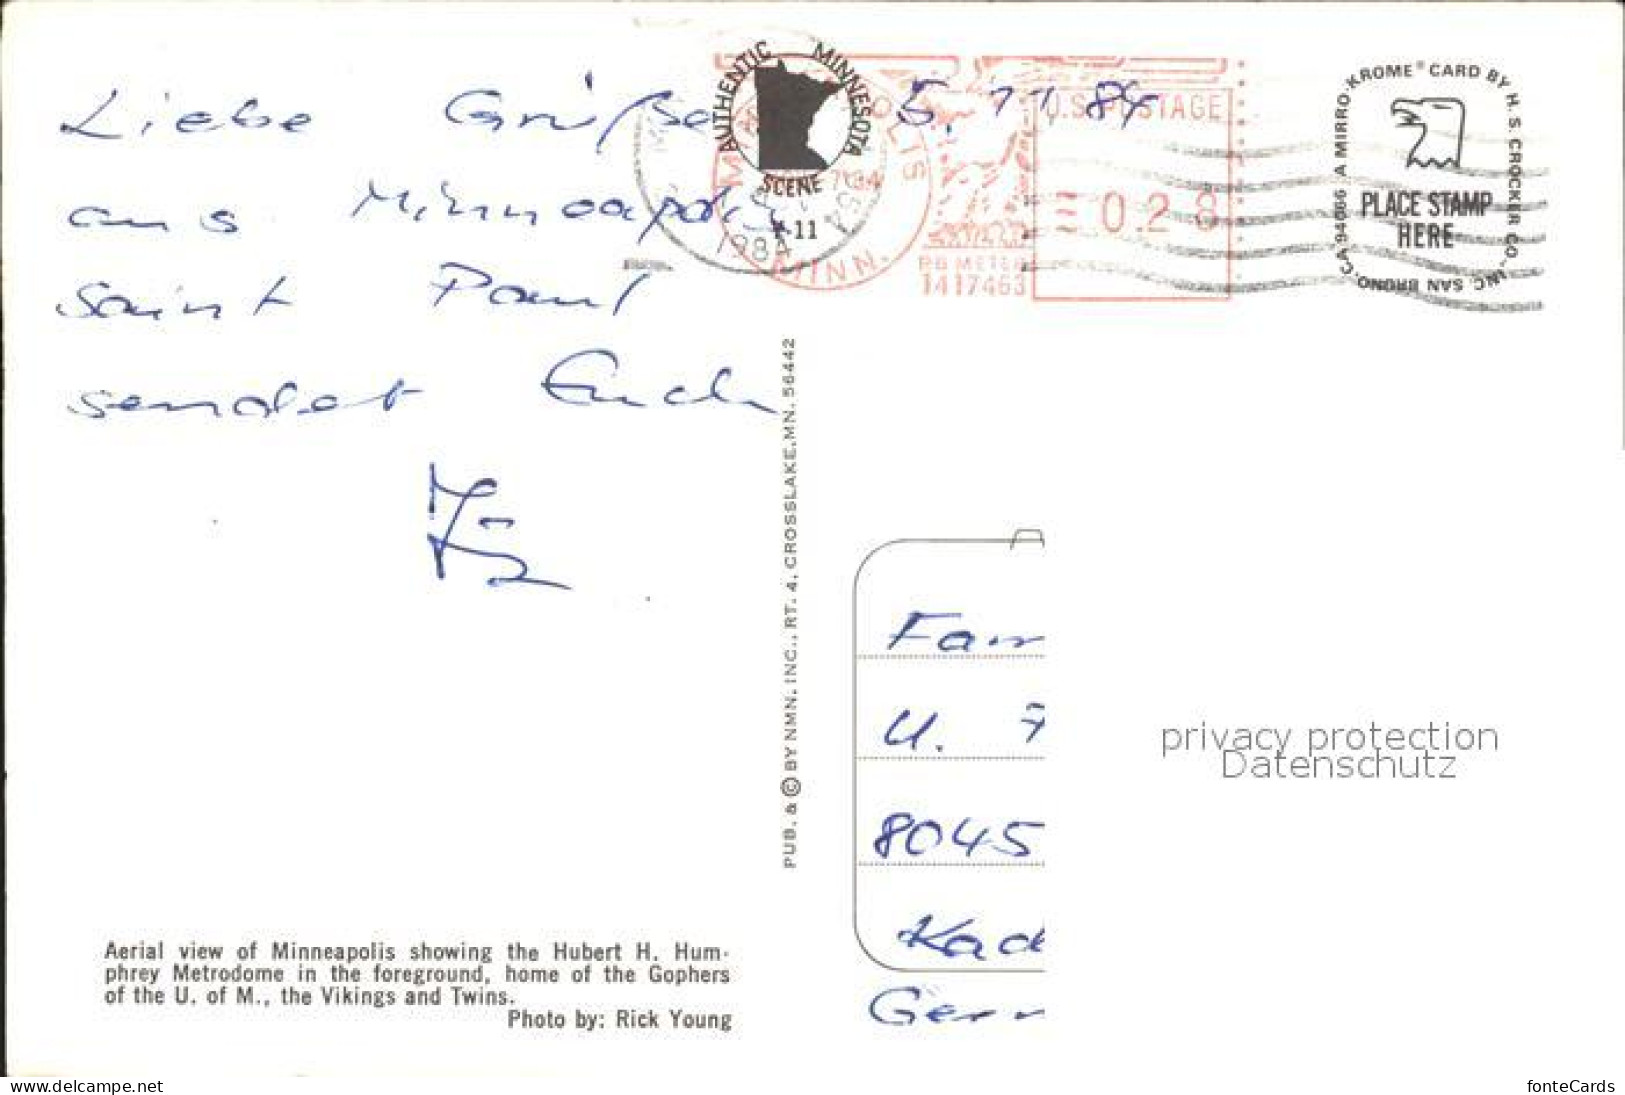 Liebe Grüße 5. 11. 84
aus Minneapolis
Saint Paul
sendet Euch
AUTHENTIC MINNESOTA
SCENE
#-11
1984
MINN.
PB METER
1417463
U.S. POSTAGE
0.28
A MIRRO-KROME® CARD BY H. S. CROCKER CO., INC. SAN BRUNO, CA. 94066
PLACE STAMP
HERE
PUB. & © BY NMN. INC., RT. 4, CROSSLAKE, MN. 56442
Fam
U. F
8045
Kad
Germ
privacy protection
Datenschutz
Aerial view of Minneapolis showing the Hubert H. Hum-
phrey Metrodome in the foreground, home of the Gophers
of the U. of M., the Vikings and Twins.
Photo by: Rick Young
www.delcampe.net
fonteCards